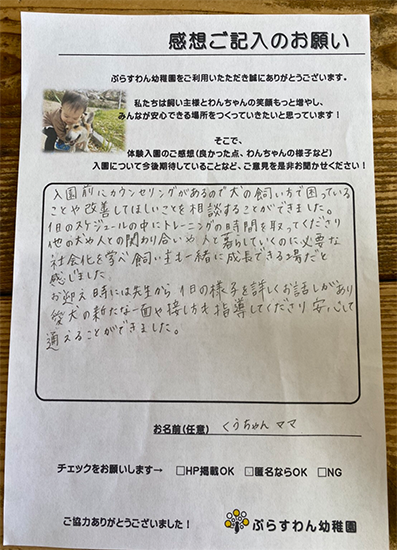 感想ご記入のお願い
ぷらすわん幼稚園をご利用いただき誠にありがとうございます。
私たちは飼い主様とわんちゃんの笑顔もっと増やし、
みんなが安心できる場所をつくっていきたいと思っています！
そこで、
体験入園のご感想(良かった点、わんちゃんの様子など)
入園について今後期待していることなど、ご意見を是非お聞かせください！
入園前にカウンセリングがあるので犬の飼い方で困っている
ことや改善してほしいことを相談することができました。
1日のスケジュールの中にトレーニングの時間を取ってくださり
他の犬や人との関わり合いや人と暮らしていくのに必要な
社会化を学べ飼い主も一緒に成長できる場だと
感じました。
お迎え時には先生から1日の様子を詳しくお話しがあり
愛犬の新たな一面や接し方も指導してくださり安心して
通えることができました。
お名前(任意) くうちゃんママ
チェックをお願いします→ □HP掲載OK □匿名ならOK □NG
ご協力ありがとうございました！
ぷらすわん幼稚園